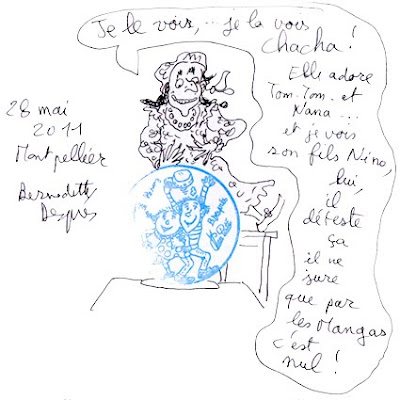 Je le vois,... je la vois
chacha !
Elle adore
Tom-Tom et
Nana ...
et je vois
son fils Nino,
lui,
il
déteste
ça
il ne
jure
que par
les Mangas
c'est
nul !
28 mai
2011
Montpellier
Bernadette
Després